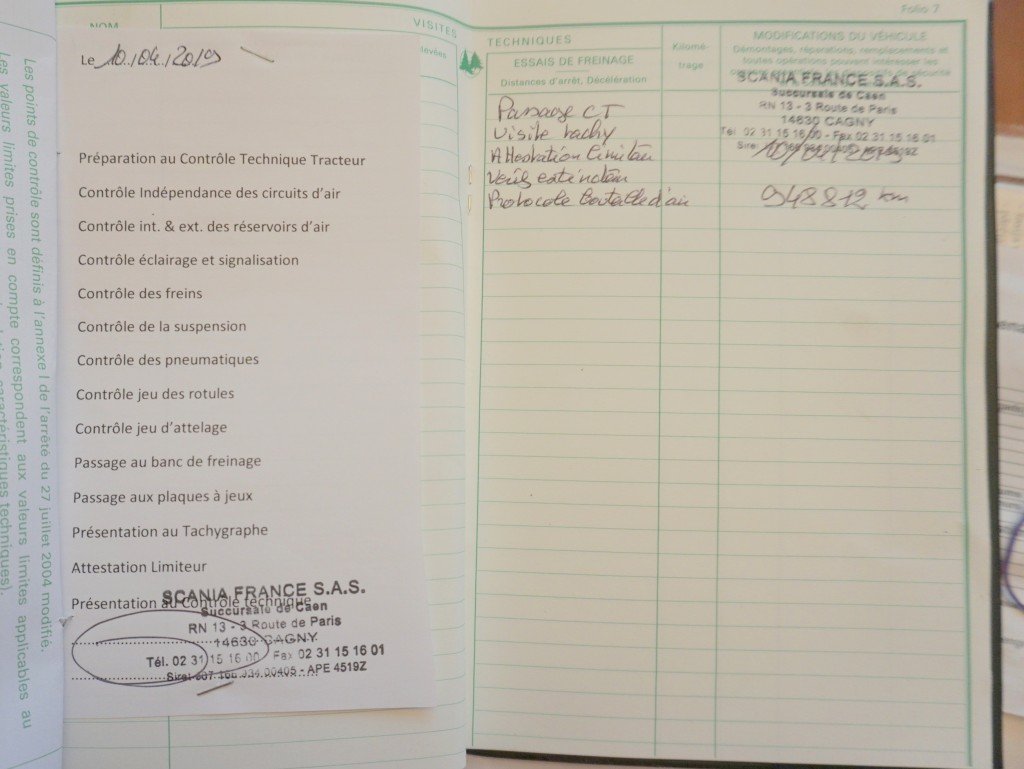 Les points de contrôle sont définis à l'annexe I de l'arrêté du 27 juillet 2004 modifié.
Les valeurs limites prises en compte correspondent aux valeurs limites applicables au
caractéristiques techniques).
NOM
VISITES
Le 10/04/2019
Préparation au Contrôle Technique Tracteur
Contrôle Indépendance des circuits d'air
Contrôle int. & ext. des réservoirs d'air
Contrôle éclairage et signalisation
Contrôle des freins
Contrôle de la suspension
Contrôle des pneumatiques
Contrôle jeu des rotules
Contrôle jeu d'attelage
Passage au banc de freinage
Passage aux plaques à jeux
Présentation au Tachygraphe
Attestation Limiteur
Présentation au Contrôle technique
SCANIA FRANCE S.A.S.
Succursale de Caen
RN 13 - 3 Route de Paris
14630 CAGNY
Tél. 02 31 15 16 00 Fax 02 31 15 16 01
APE 4519Z
Folio 7
TECHNIQUES
ESSAIS DE FREINAGE
Distances d'arrêt, Décélération
Kilomé-
trage
MODIFICATIONS DU VÉHICULE
Démontages, réparations, remplacements et
toutes opérations pouvant intéresser les
SCANIA FRANCE S.A.S.
Succursale de Caen
RN 13 - 3 Route de Paris
14630 CAGNY
Tél 02 31 15 16 00 - Fax 02 31 15 16 01
10/04/2019
948812 km
Passage CT
Visite tachy
Attestation limiteur
Verif extincteur
Protocole bouteille d'air